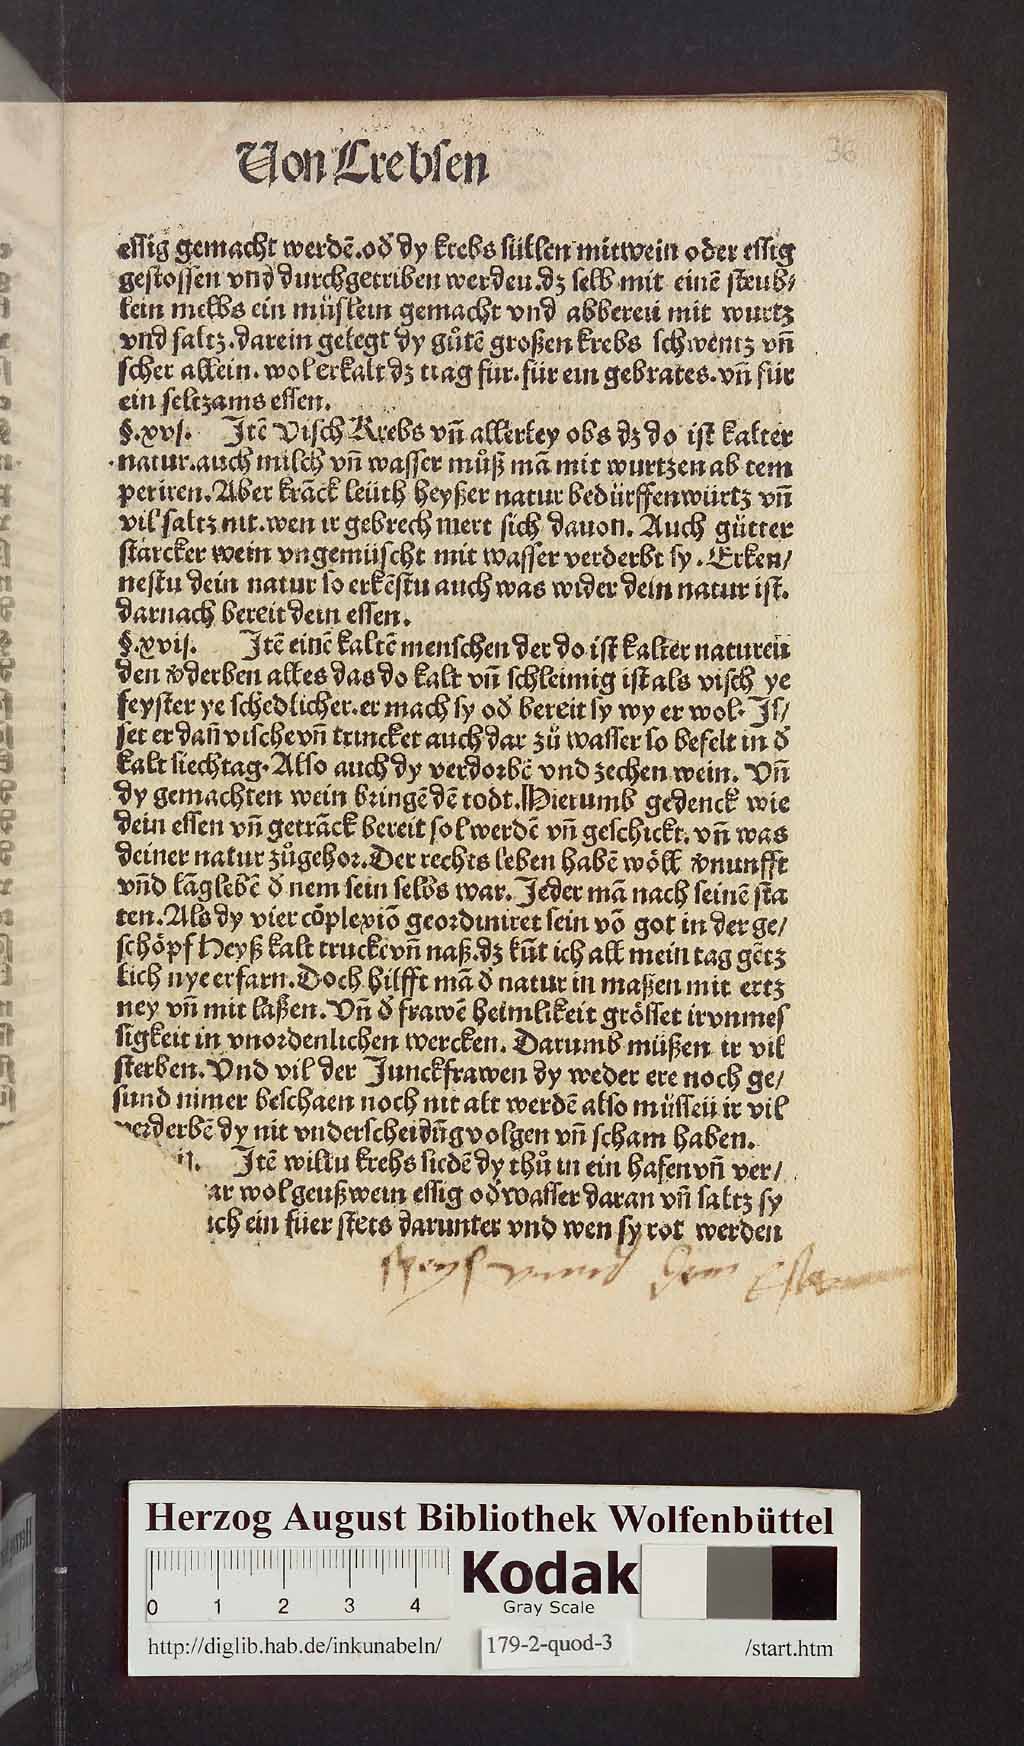 Von Crebsen
36
essig gemacht werdē.od̄ dy krebs süllen mit wein oder essig
gestossen vnd durchgetriben werden.dz selb mit einē steub⸗
lein melbs ein müslein gemacht vnd abbereit mit wurtz
vnd saltz.darein gelegt dy gůtē großen krebs schwentz vn̄
scher allein.wol erkalt dz trag für.für ein gebrates.vn̄ für
ein seltzams essen.
§.xvj. Jtē Visch Krebs vn̄ allerley obs dz do ist kalter
natur.auch milch vn̄ wasser můß mā mit wurtzen ab tem
periren.Aber krāck leüth heyßer natur bedürffen würtz vn̄
vil saltz nit.wen ir gebrech mert sich dauon. Auch gütter
starcker wein vngemüscht mit wasser verderbt sy. Erken⸗
nestu dein natur so erkēstu auch was wider dein natur ist.
darnach bereit dein essen.
§.xvij. Jtē einē kaltē menschen der do ist kalter naturen
den v̄derben alles das do kalt vn̄ schleimig ist als visch ye
feyster ye schedlicher.er mach sy od̄ bereit sy wy er wol. Js⸗
set er dan̄ vische vn̄ trincket auch dar zů wasser so befelt in d̄
kalt siechtag. Also auch dy verdorbē vnd zechen wein. Vn̄
dy gemachten wein bringē dē todt.Hierumb gedenck wie
dein essen vn̄ getrāck bereit sol werdē vn̄ geschickt. vn̄ was
deiner natur zůgehor.Der rechts leben habē wöll v̄nunfft
vn̄d lāglebē d̄ nem sein selbs war. Jeder mā nach seinē sta
ten.Als dy vier cōplexiō geordiniret sein vō got in der ge⸗
schöpf Heyß kalt trucke vn̄ naß.dz kūt ich all mein tag gētz
lich nye erfarn.Doch hilfft mā d̄ natur in maßen mit ertz
ney vn̄ mit laßen. Vn̄ d̄ frawē heimlikeit grösset ir vnmes
sigkeit in vnordenlichen wercken. Darumb müßen ir vil
sterben.Vnd vil der Junckfrawen dy weder ere noch ge⸗
sund nimer beschaen noch nit alt werdē also müssen ir vil
verderbē dy nit vnderscheidūg volgen vn̄ scham haben.
ij. Jtē willtu krebs siedē dy thů in ein hafen vn̄ ver⸗
ar wol geuß wein essig od̄ wasser daran vn̄ saltz sy
ich ein füer stets darunter vnd wen sy rot werden
Herzog August Bibliothek Wolfenbüttel
0 1 2 3 4
Kodak
Gray Scale
http://diglib.hab.de/inkunabeln/ 179-2-quod-3 /start.htm